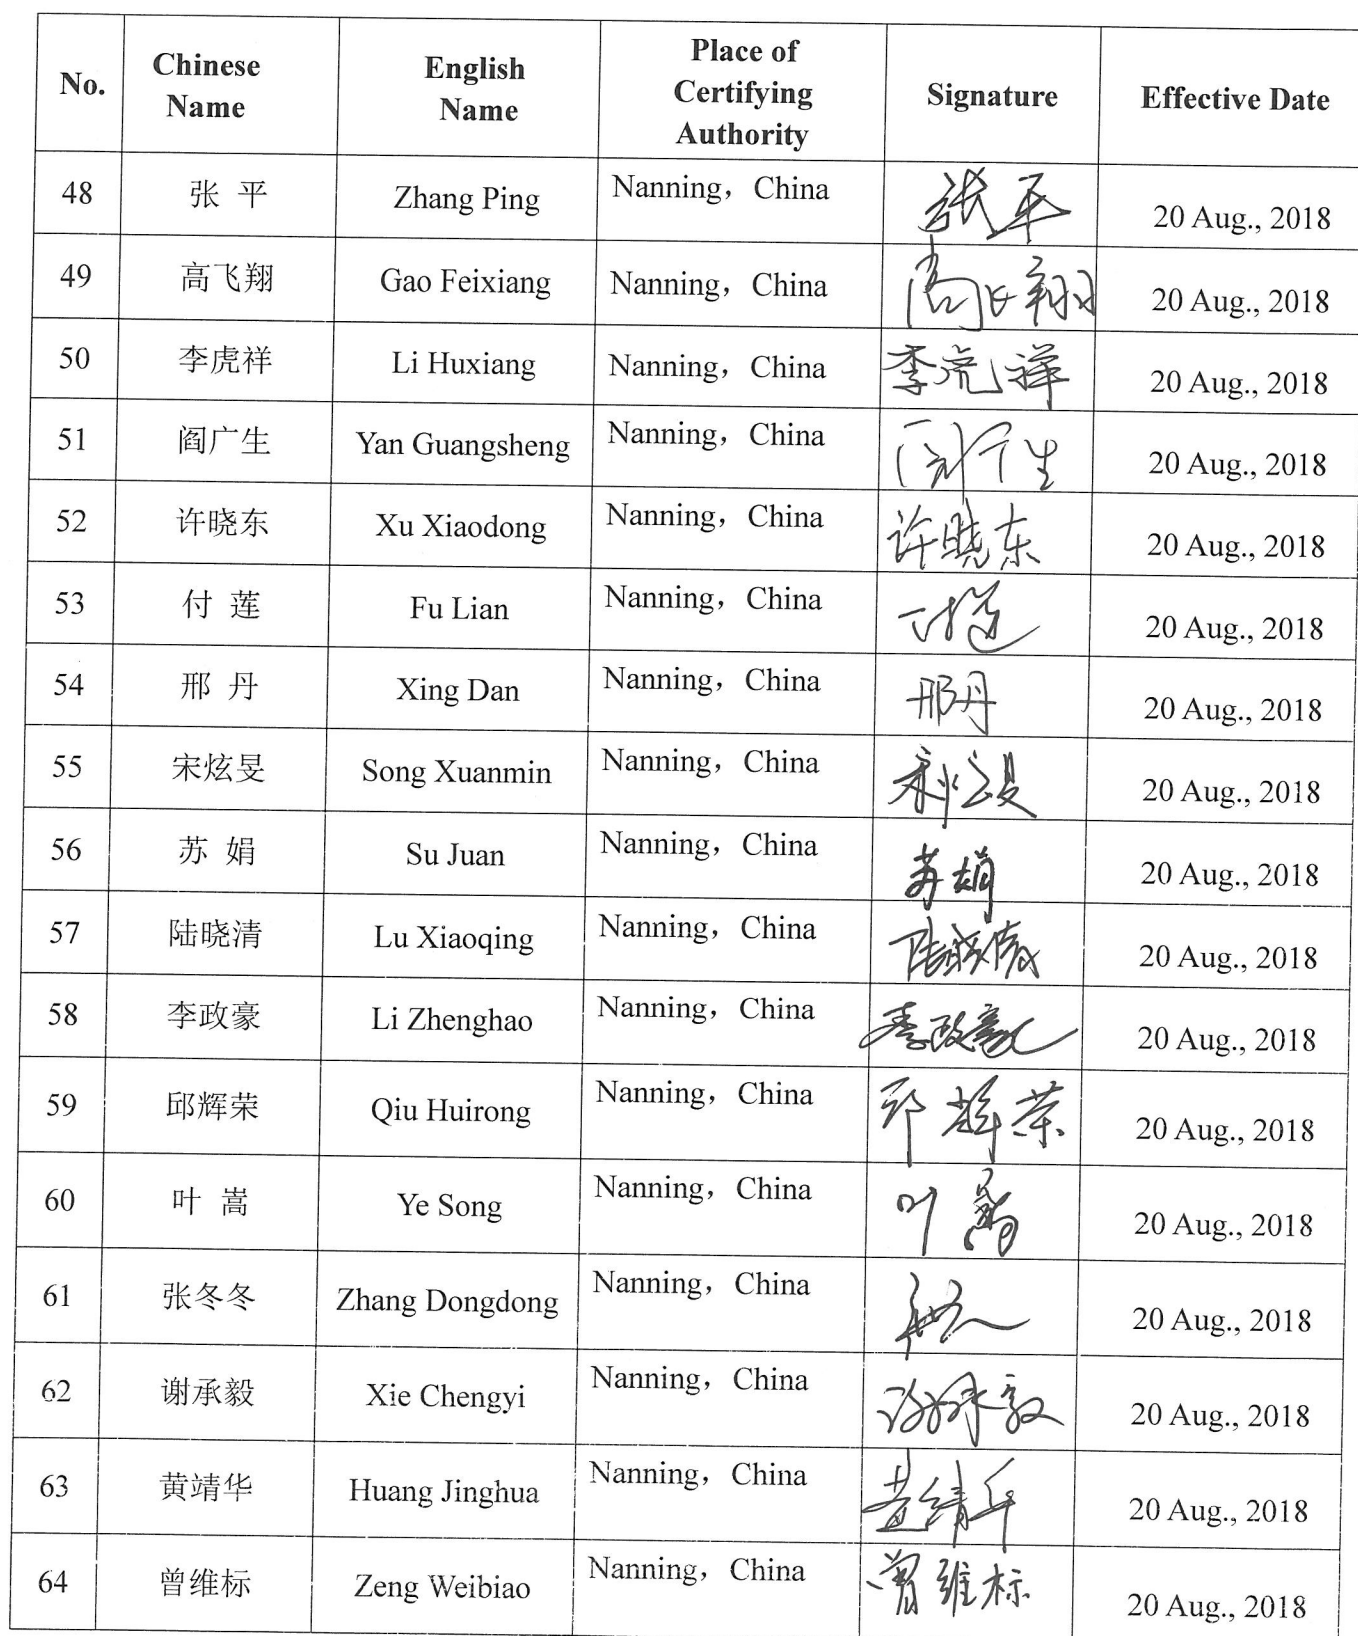 No. Chinese Name English Name Place of Certifying Authority Signature Effective Date
48 张 平 Zhang Ping Nanning，China 张平 20 Aug., 2018
49 高飞翔 Gao Feixiang Nanning，China 高飞翔 20 Aug., 2018
50 李虎祥 Li Huxiang Nanning，China 李虎祥 20 Aug., 2018
51 阎广生 Yan Guangsheng Nanning，China 20 Aug., 2018
52 许晓东 Xu Xiaodong Nanning，China 许晓东 20 Aug., 2018
53 付 莲 Fu Lian Nanning，China 20 Aug., 2018
54 邢 丹 Xing Dan Nanning，China 邢丹 20 Aug., 2018
55 宋炫旻 Song Xuanmin Nanning，China 20 Aug., 2018
56 苏 娟 Su Juan Nanning，China 苏娟 20 Aug., 2018
57 陆晓清 Lu Xiaoqing Nanning，China 陆晓清 20 Aug., 2018
58 李政豪 Li Zhenghao Nanning，China 李政豪 20 Aug., 2018
59 邱辉荣 Qiu Huirong Nanning，China 邱辉荣 20 Aug., 2018
60 叶 嵩 Ye Song Nanning，China 叶嵩 20 Aug., 2018
61 张冬冬 Zhang Dongdong Nanning，China 20 Aug., 2018
62 谢承毅 Xie Chengyi Nanning，China 谢承毅 20 Aug., 2018
63 黄靖华 Huang Jinghua Nanning，China 黄靖华 20 Aug., 2018
64 曾维标 Zeng Weibiao Nanning，China 曾维标 20 Aug., 2018